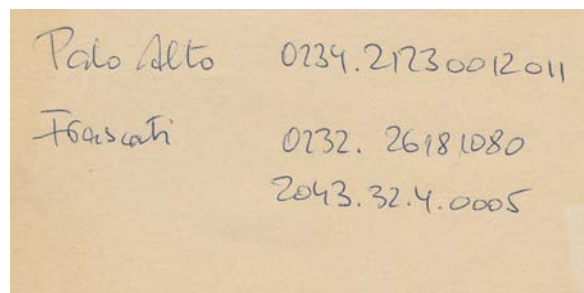 Palo Alto 0234.21230012011
Frascati 0232. 26181080
2043.32.4.0005